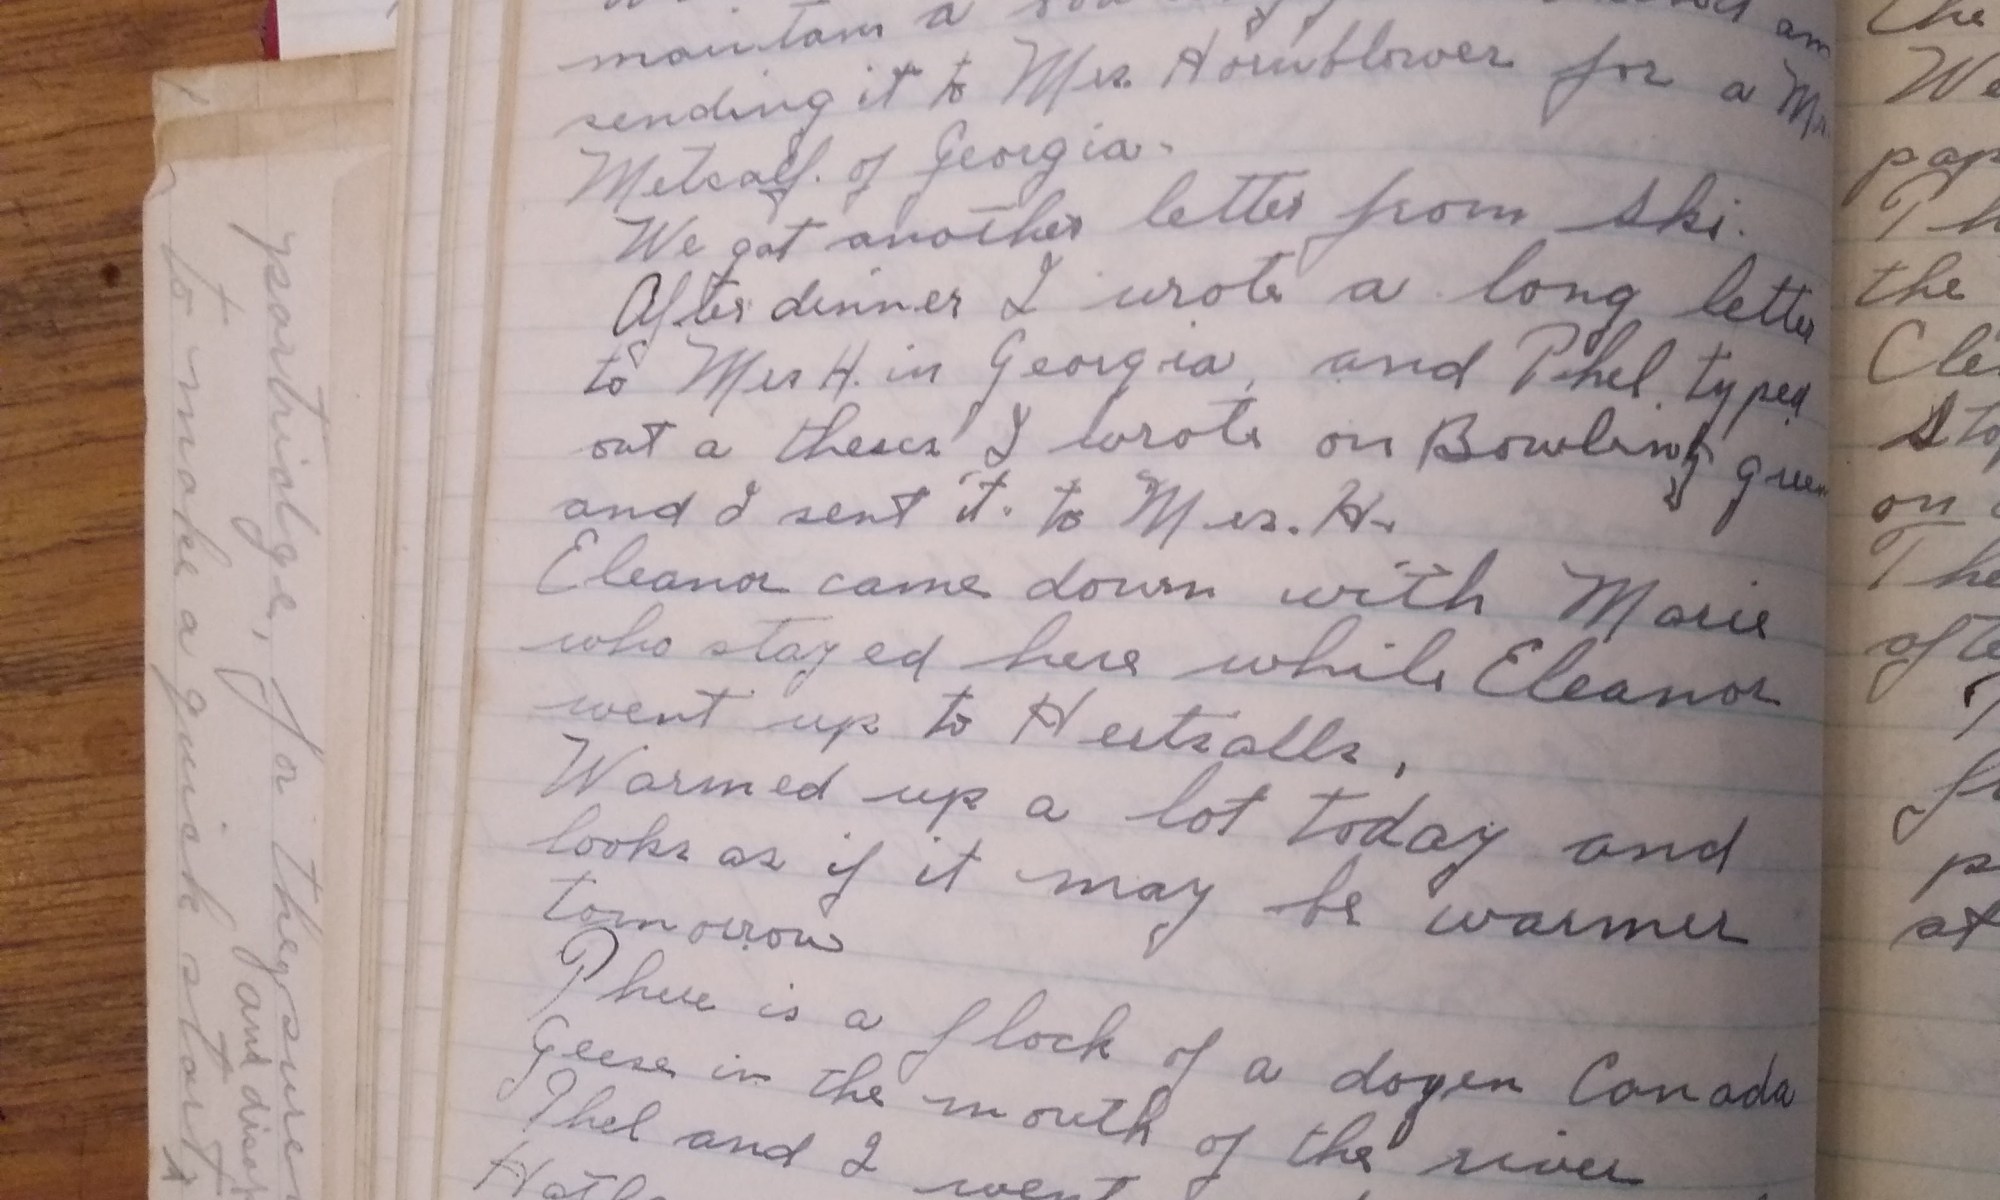 maintain a
sending it to Mrs. Hornblower for a Mr.
Metcalf. of Georgia.
We got another letter from Ski.
After dinner I wrote a long letter
to Mrs H. in Georgia, and Phel typed
out a thesis I wrote on Bowling green
and I sent it. to Mrs. H.
Eleanor came down with Marie
who stayed here while Eleanor
went up to
Warmed up a lot today and
looks as if it may be warmer
tomorrow
There is a flock of a dozen Canada
Geese in the mouth of the river
Phel and I went
partridge, for they sure
and
to make a quick start
the
We
pap
Th
the
Cle
Sto
on
The
afte
at